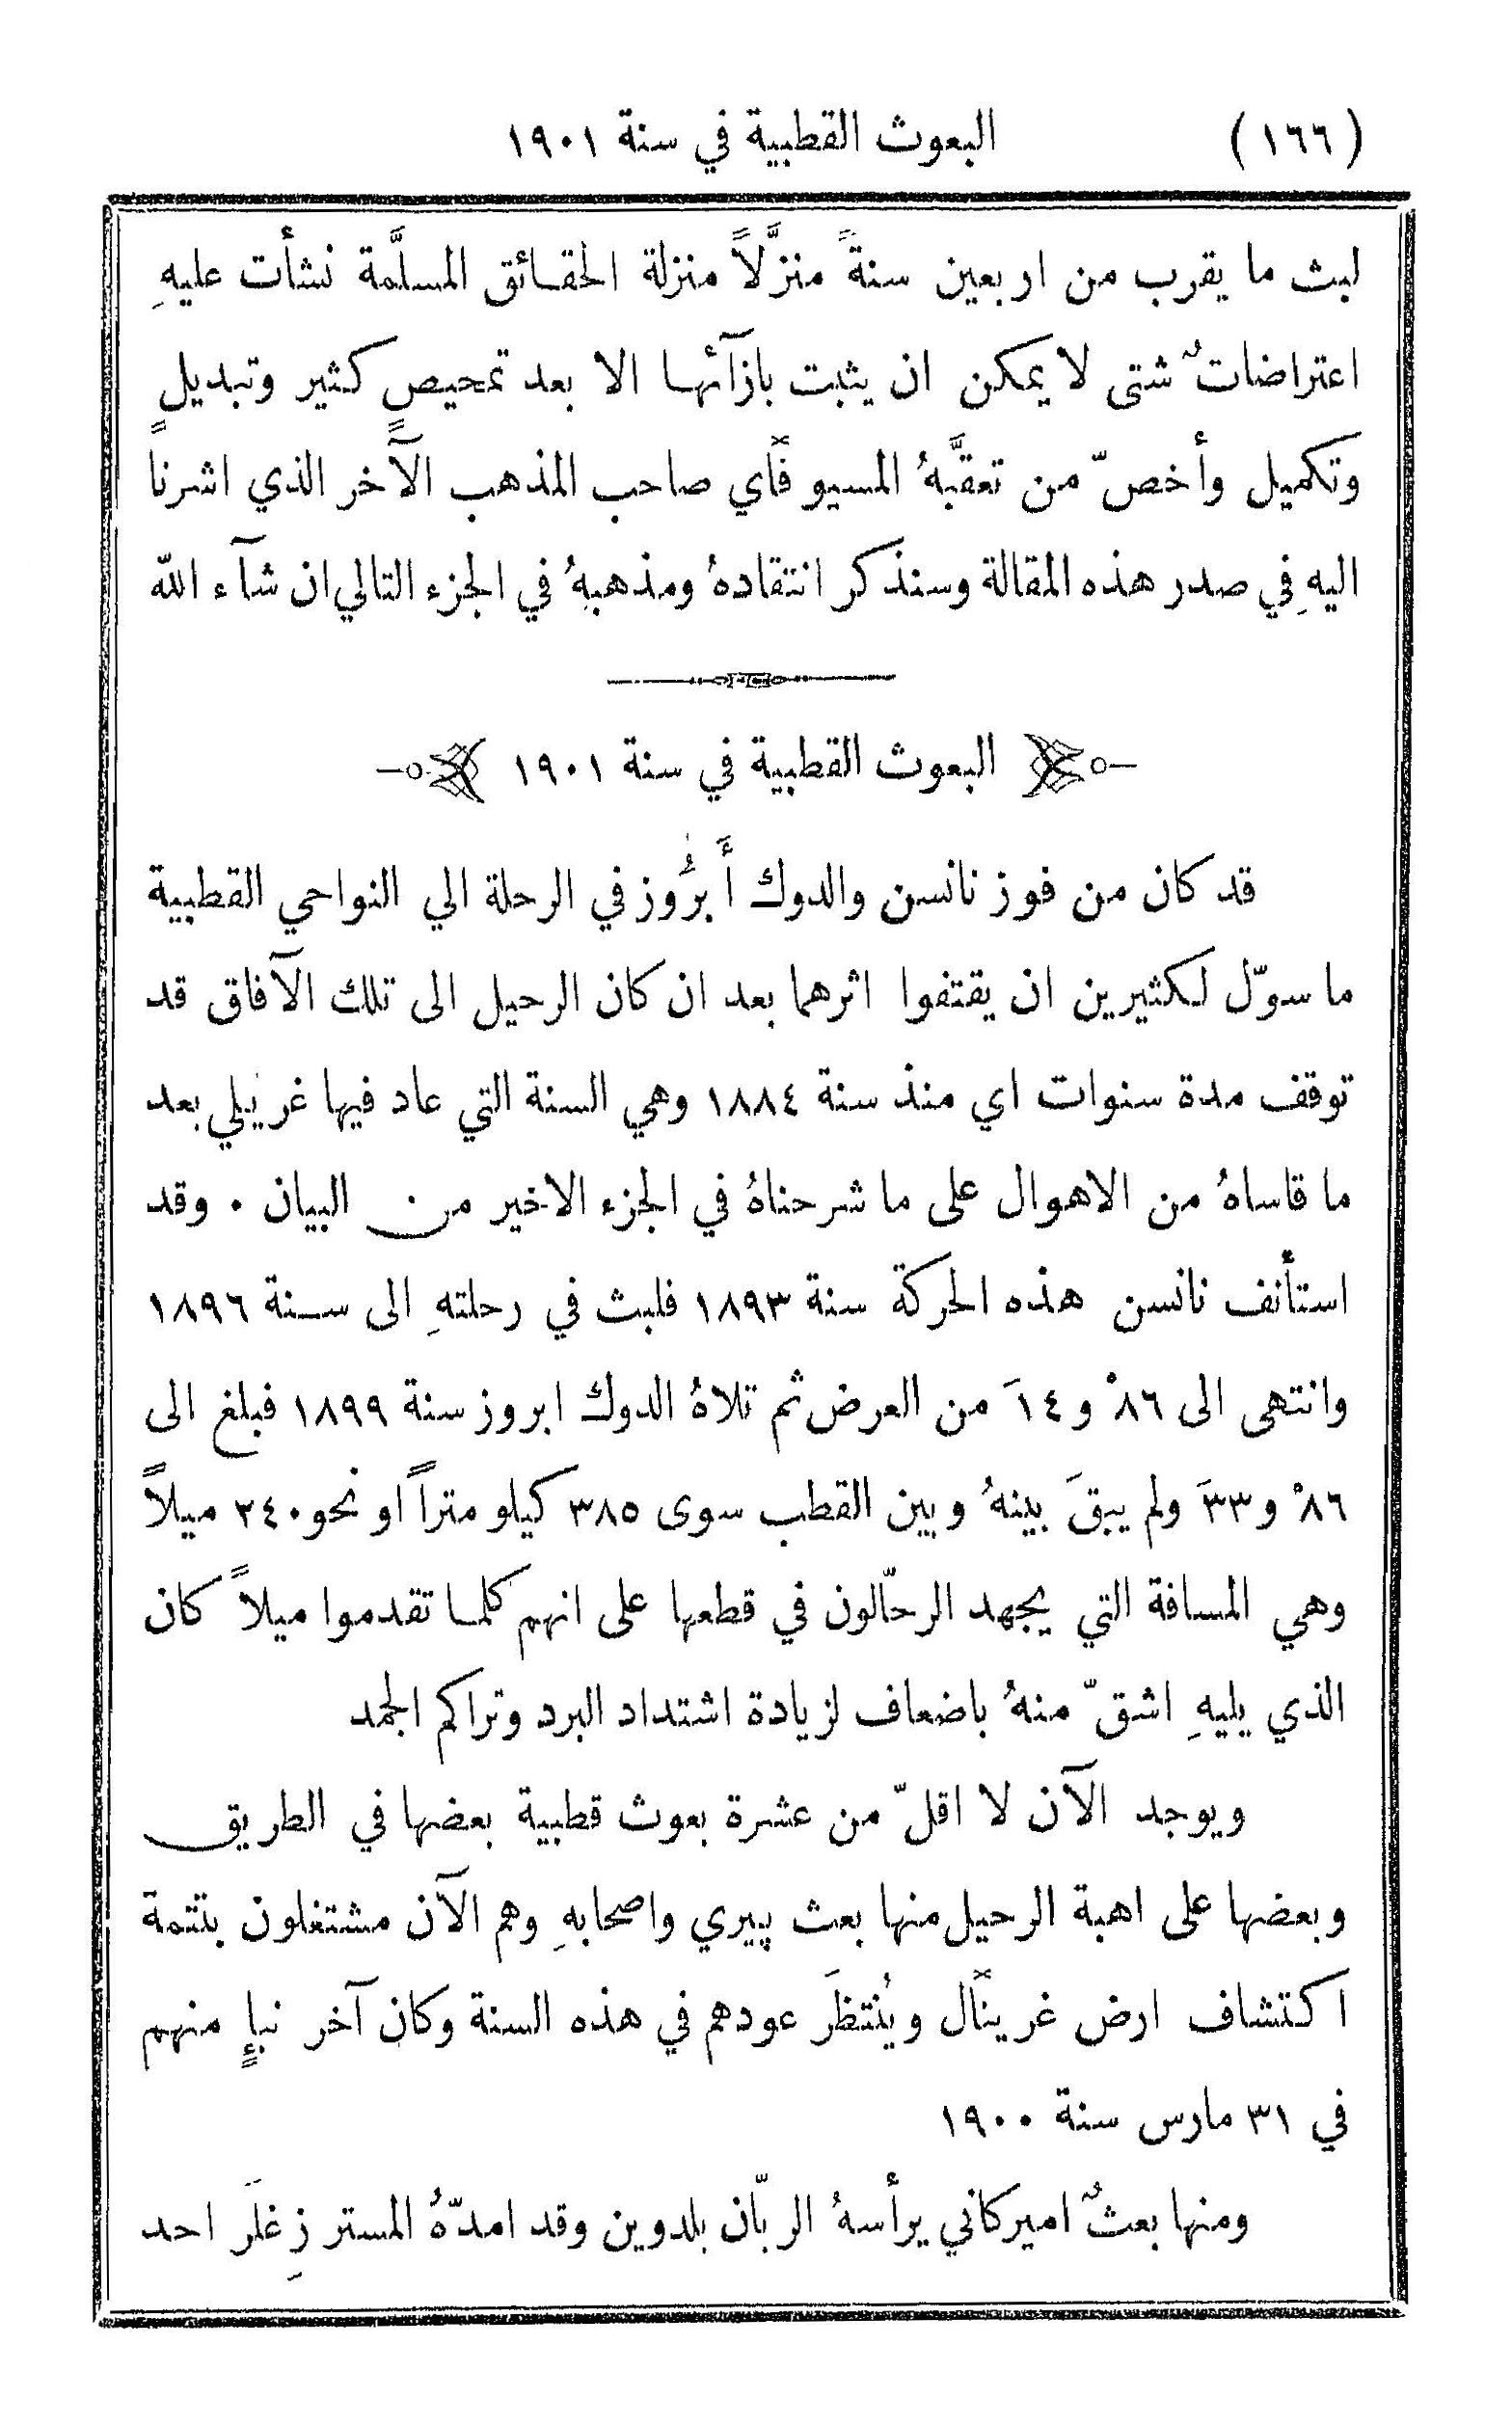 (١٦٦) البعوث القطبية في سنة ١٩٠١
لبث ما يقرب من اربعين سنةً منزَّلاً منزلة الحقائق المسلَّمة نشأت عليهِ
اعتراضاتٌ شتى لا يمكن ان يثبت بازآئها الا بعد تمحيصٍ كثير وتبديلٍ
وتكميل وأخصّ من تعقَّبهُ المسيو فاي صاحب المذهب الآخر الذي اشرنا
اليهِ في صدر هذه المقالة وسنذكر انتقادهُ ومذهبهُ في الجزء التالي ان شآء الله
البعوث القطبية في سنة ١٩٠١
قد كان من فوز نانسن والدوك أَبرُوز في الرحلة الي النواحي القطبية
ما سوّل لكثيرين ان يقتفوا اثرهما بعد ان كان الرحيل الى تلك الآفاق قد
توقف مدة سنوات اي منذ سنة ١٨٨٤ وهي السنة التي عاد فيها غريلي بعد
ما قاساهُ من الاهوال على ما شرحناهُ في الجزء الاخير من البيان ٠ وقد
استأنف نانسن هذه الحركة سنة ١٨٩٣ فلبث في رحلتهِ الى سنة ١٨٩٦
وانتهى الى ٨٦ْ و١٤َ من العرض ثم تلاهُ الدوك ابروز سنة ١٨٩٩ فبلغ الى
٨٦ْ و٣٣َ ولم يبقَ بينهُ وبين القطب سوى ٣٨٥ كيلو متراً او نحو ٢٤٠ ميلاً
وهي المسافة التي يجهد الرحّالون في قطعها على انهم كلما تقدموا ميلاً كان
الذي يليهِ اشقّ منهُ باضعاف لزيادة اشتداد البرد وتراكم الجمد
ويوجد الآن لا اقلّ من عشرة بعوث قطبية بعضها في الطريق
وبعضها على اهبة الرحيل منها بعث پيري واصحابهِ وهم الآن مشتغلون بتتمة
اكتشاف ارض غرينال ويُنتظَر عودهم في هذه السنة وكان آخر نبإٍ منهم
في ٣١ مارس سنة ١٩٠٠
ومنها بعثٌ اميركاني يرأسهُ الربّان بلدوين وقد امدّهُ المستر زِغلَر احد